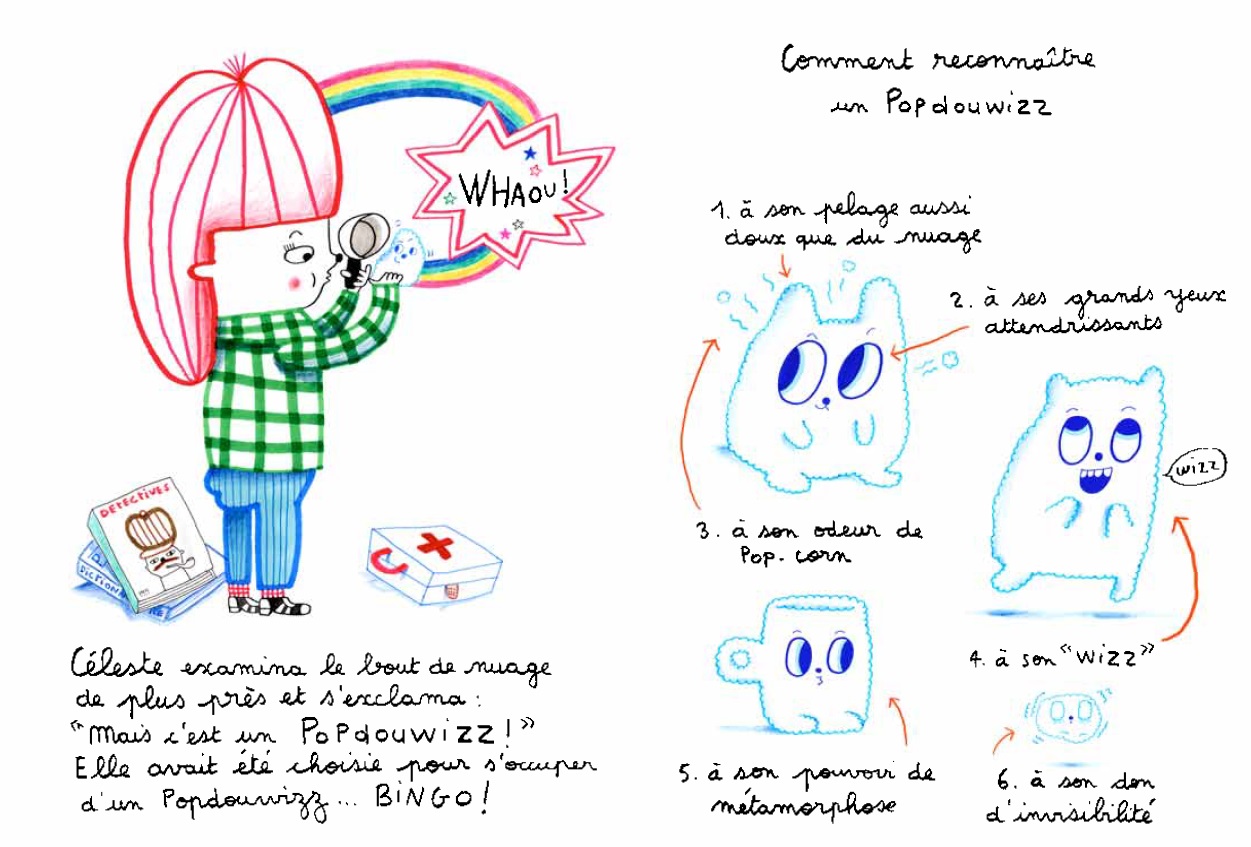 WHAOU!
DETECTIVES
DICTIONNAIRE
Céleste examina le bout de nuage
de plus près et s'exclama :
"Mais c'est un PoPdouwizz!"
Elle avait été choisie pour s'occuper
d'un Popdouwizz... BiNGO!
Comment reconnaître
un Popdouwizz
1. à son pelage aussi
doux que du nuage
2. à ses grands yeux
attendrissants
3. à son odeur de
Pop-corn
wizz
4. à son "wizz"
5. à son pouvoir de
métamorphose
6. à son don
d'invisibilité